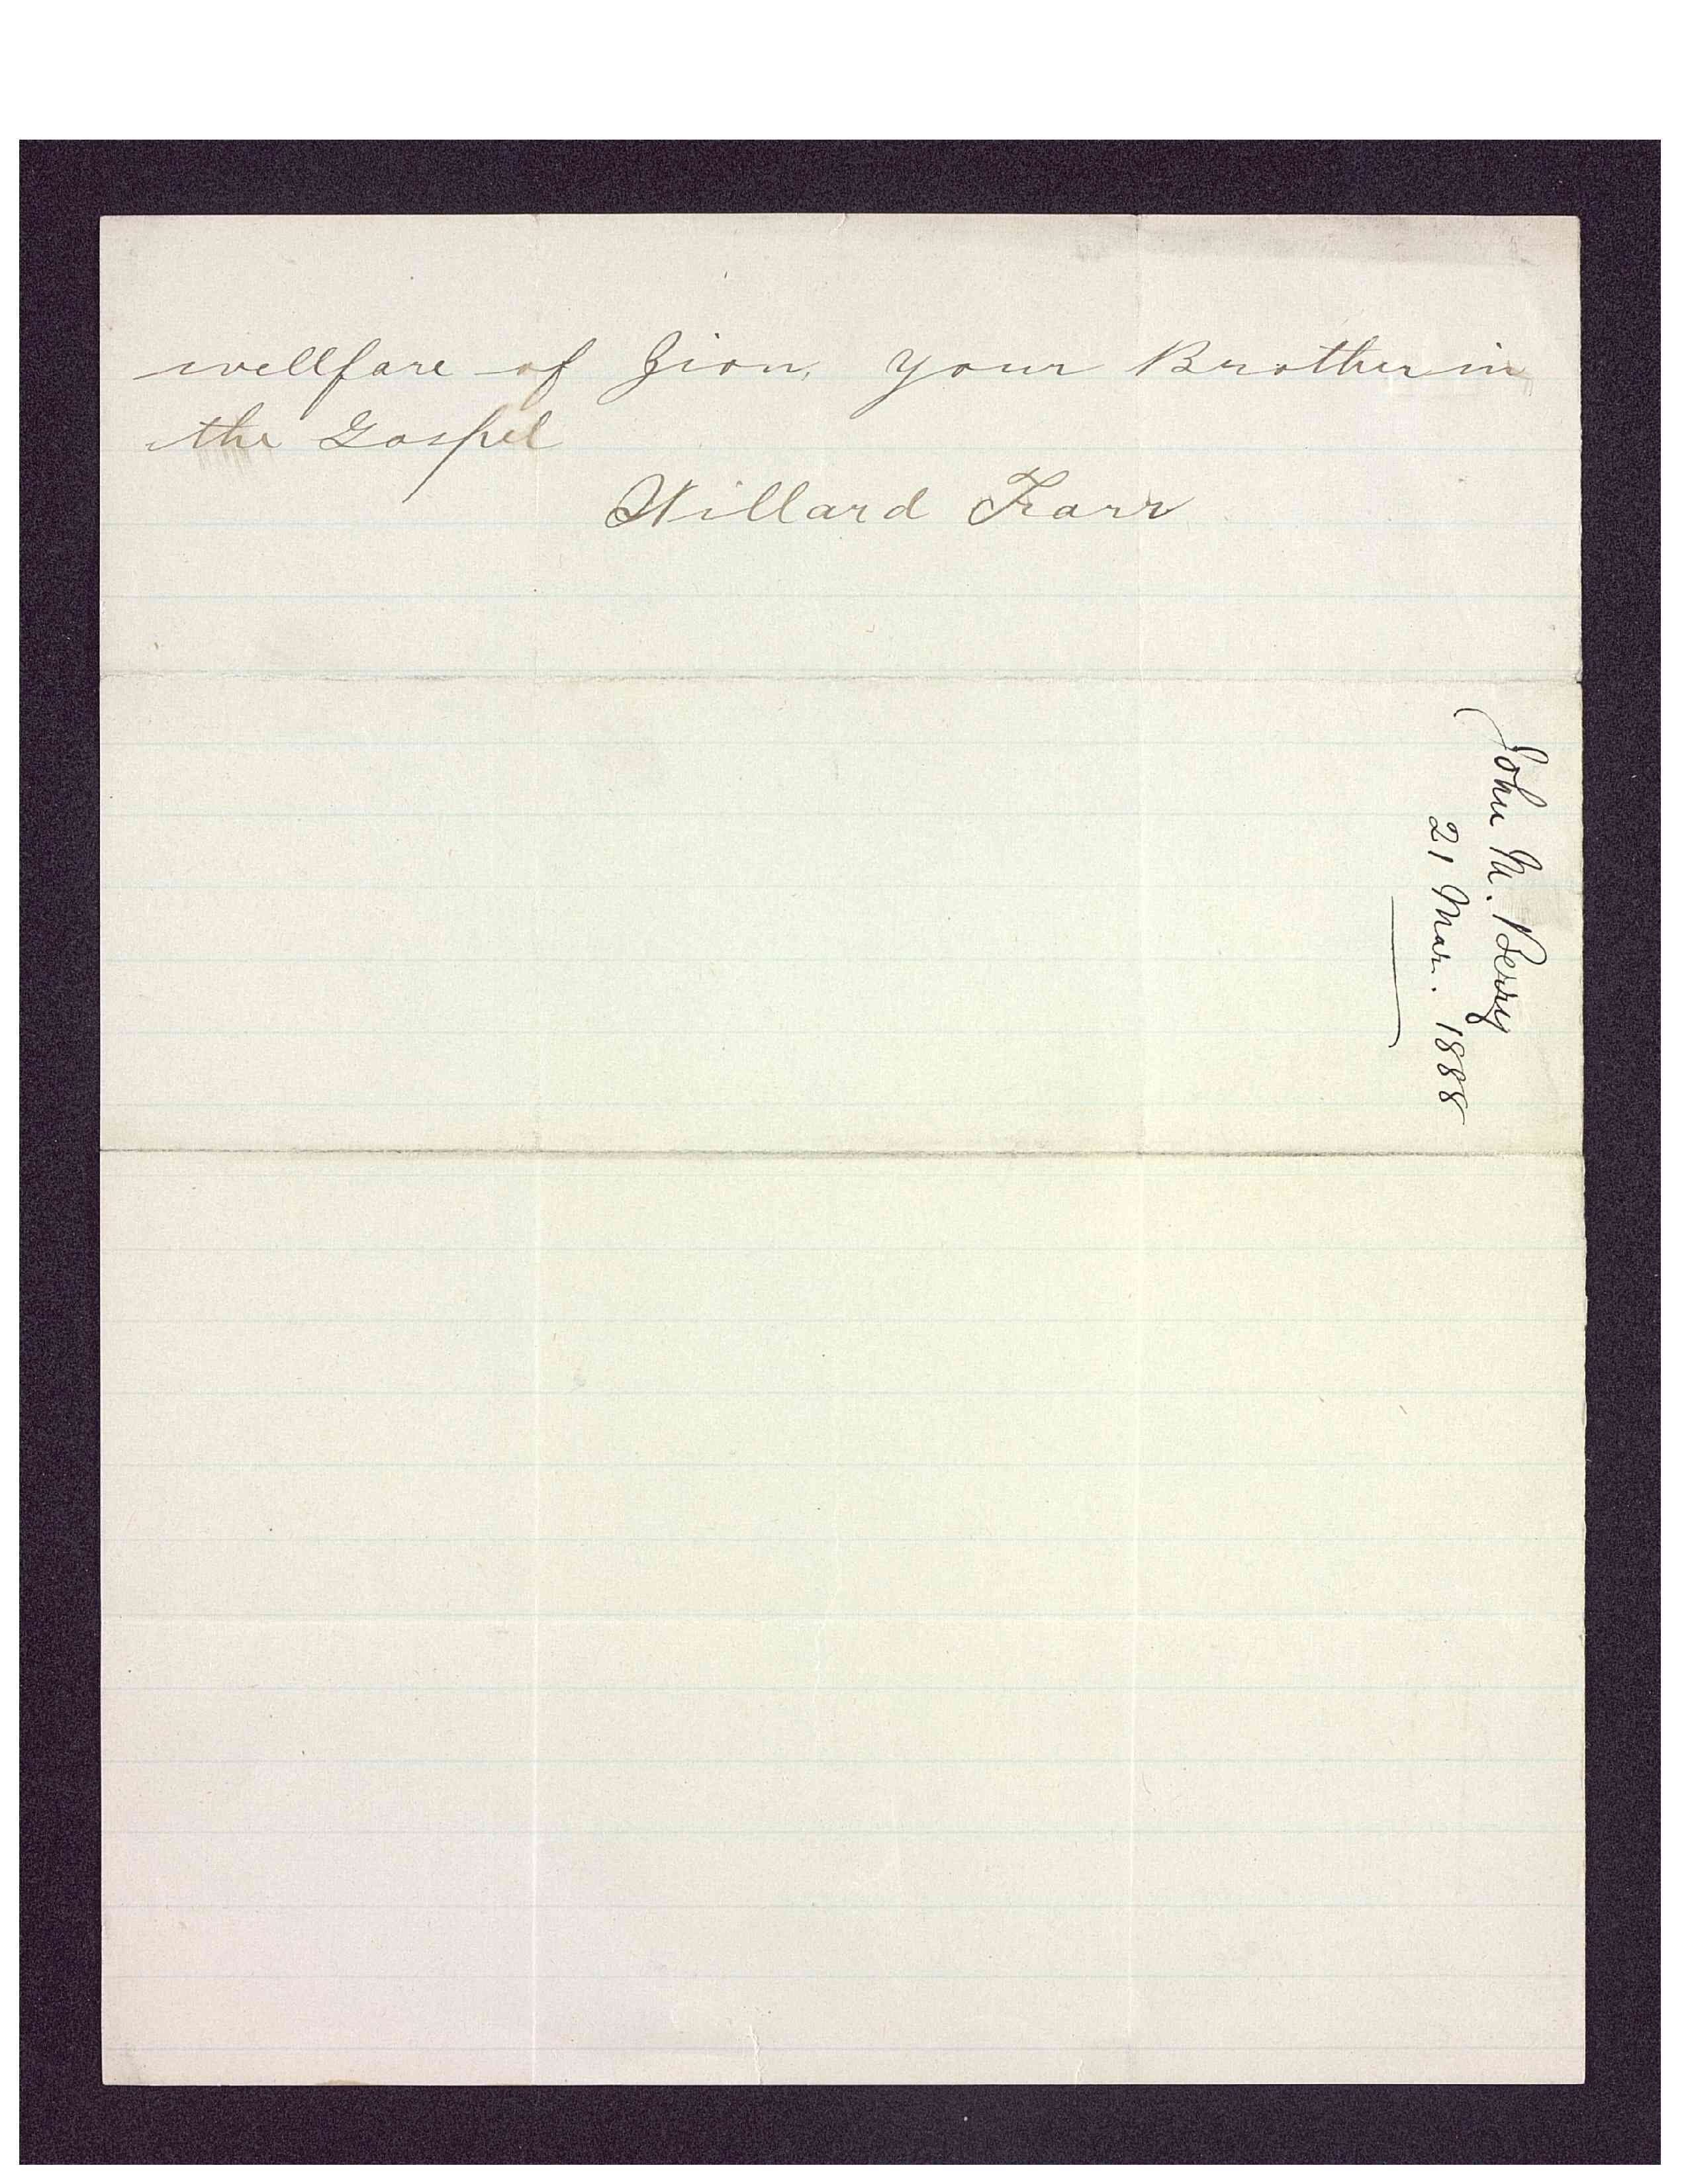 wellfare of Zion, your Brother in
the Gospel
Willard Farr
John M. Berry
21 Mar. 1888